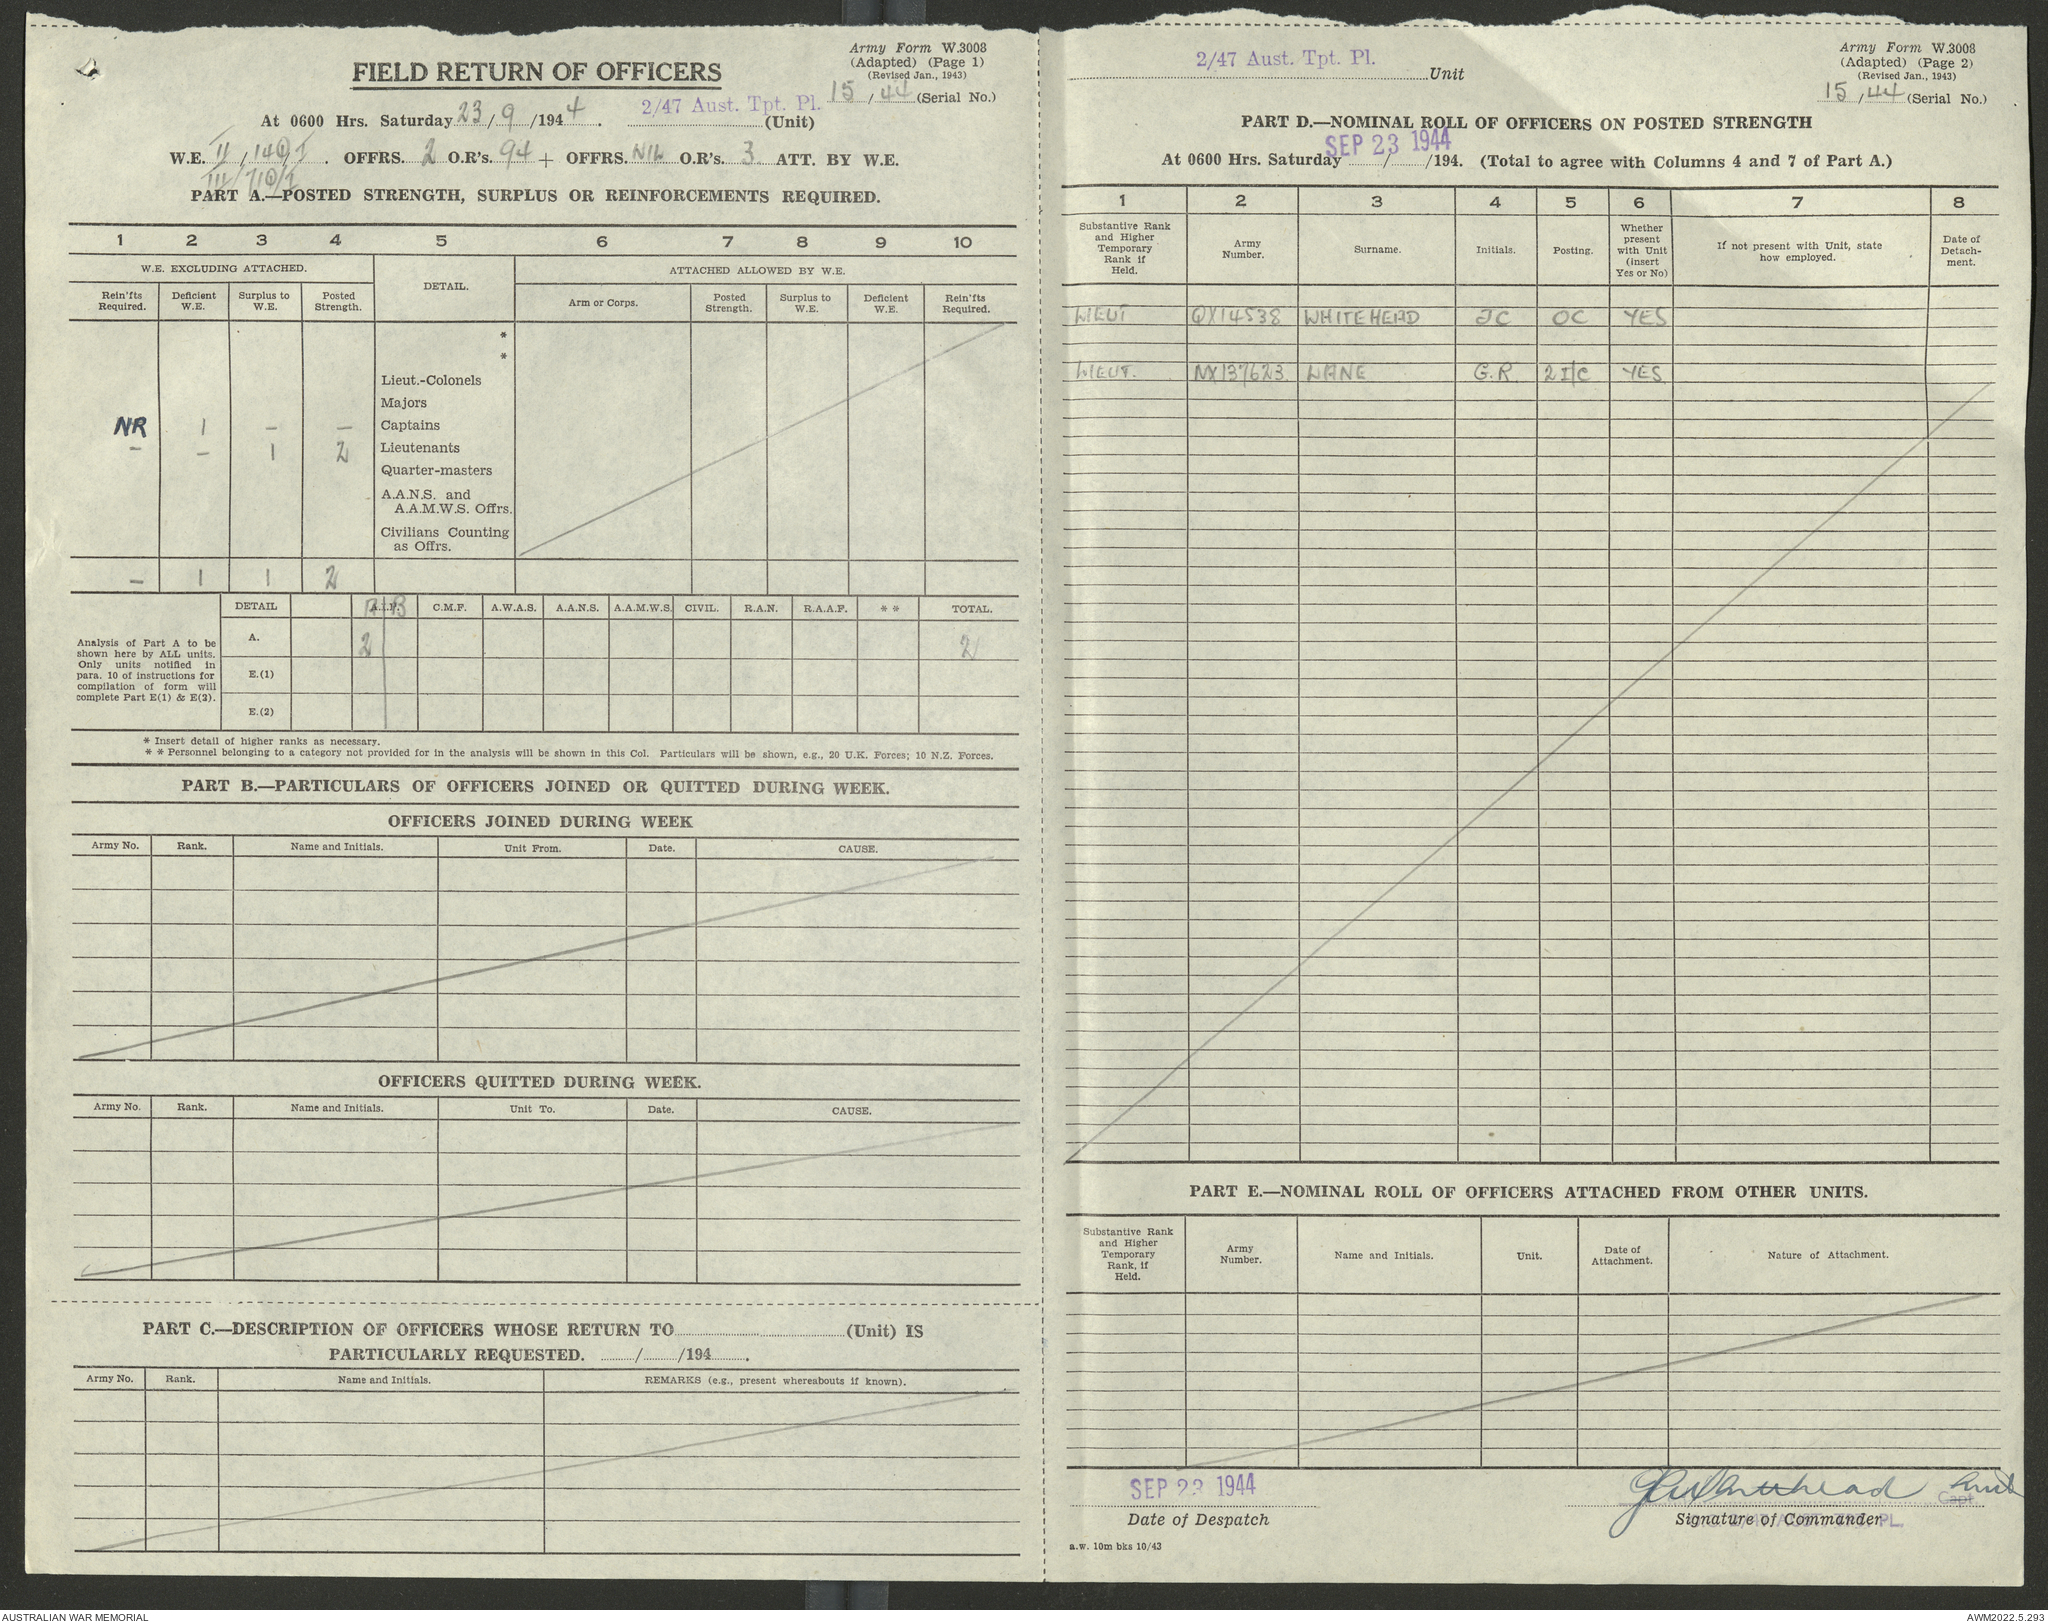 Army Form W.3008
(Adapted) (Page 1)
(Revised Jan., 1943)
FIELD RETURN OF OFFICERS
15 / 44 (Serial No.)
At 0600 Hrs. Saturday 23 / 9 /194 4 . 2/47 Aust. Tpt. Pl. (Unit)
W.E. II / 140 / I . OFFRS. 2 O.R's. 94 + OFFRS. NIL O.R's. 3 ATT. BY W.E.
III / 710 / I
PART A.—POSTED STRENGTH, SURPLUS OR REINFORCEMENTS REQUIRED.
1 2 3 4 5 6 7 8 9 10
W.E. EXCLUDING ATTACHED. DETAIL. ATTACHED ALLOWED BY W.E.
Rein'fts Required. Deficient W.E. Surplus to W.E. Posted Strength. Arm or Corps. Posted Strength. Surplus to W.E. Deficient W.E. Rein'fts Required.
*
*
Lieut.-Colonels
Majors
NR 1 — — Captains
— — 1 2 Lieutenants
Quarter-masters
A.A.N.S. and
A.A.M.W.S. Offrs.
Civilians Counting
as Offrs.
— 1 1 2
DETAIL A.I.F. C.M.F. A.W.A.S. A.A.N.S. A.A.M.W.S. CIVIL. R.A.N. R.A.A.F. * * TOTAL.
Analysis of Part A to be
shown here by ALL units.
Only units notified in
para. 10 of instructions for
compilation of form will
complete Part E(1) & E(2).
A. 2 2
E.(1)
E.(2)
* Insert detail of higher ranks as necessary.
* * Personnel belonging to a category not provided for in the analysis will be shown in this Col. Particulars will be shown, e.g., 20 U.K. Forces; 10 N.Z. Forces.
PART B.—PARTICULARS OF OFFICERS JOINED OR QUITTED DURING WEEK.
OFFICERS JOINED DURING WEEK
Army No. Rank. Name and Initials. Unit From. Date. CAUSE.
OFFICERS QUITTED DURING WEEK.
Army No. Rank. Name and Initials. Unit To. Date. CAUSE.
PART C.—DESCRIPTION OF OFFICERS WHOSE RETURN TO (Unit) IS
PARTICULARLY REQUESTED. / /194 .
Army No. Rank. Name and Initials. REMARKS (e.g., present whereabouts if known).
2/47 Aust. Tpt. Pl. Unit
Army Form W.3008
(Adapted) (Page 2)
(Revised Jan., 1943)
15 / 44 (Serial No.)
PART D.—NOMINAL ROLL OF OFFICERS ON POSTED STRENGTH
SEP 23 1944
At 0600 Hrs. Saturday / /194. (Total to agree with Columns 4 and 7 of Part A.)
1 2 3 4 5 6 7 8
Substantive Rank and Higher Temporary Rank if Held. Army Number. Surname. Initials. Posting. Whether present with Unit (insert Yes or No) If not present with Unit, state how employed. Date of Detach-ment.
LIEUT QX14538 WHITEHEAD JC OC YES
LIEUT. NX137623 LANE G.R. 2I/C YES
PART E.—NOMINAL ROLL OF OFFICERS ATTACHED FROM OTHER UNITS.
Substantive Rank and Higher Temporary Rank, if Held. Army Number. Name and Initials. Unit. Date of Attachment. Nature of Attachment.
SEP 23 1944
Date of Despatch
JC Whitehead Lieut
Capt.
Signature of Commander
a.w. 10m bks 10/43
AUSTRALIAN WAR MEMORIAL
AWM2022.5.293